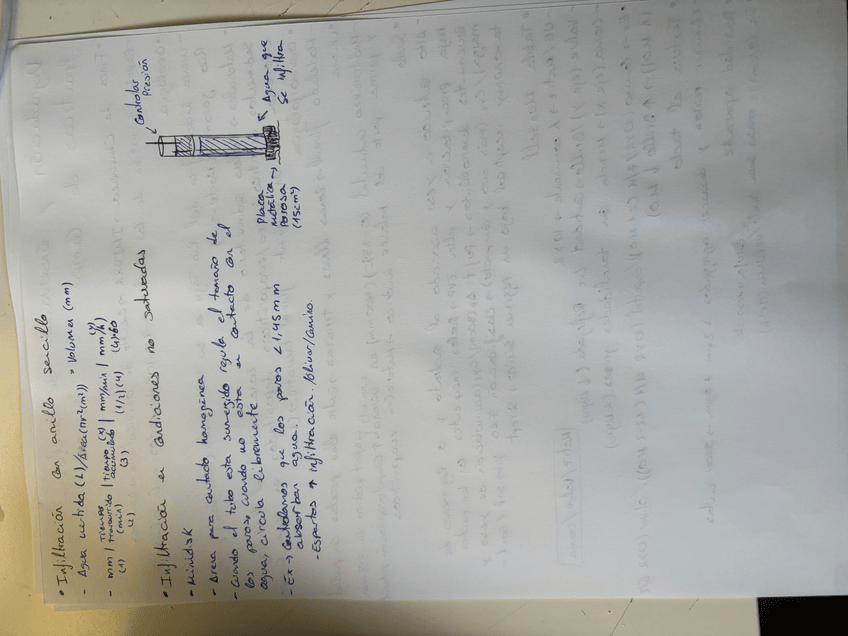 • Infiltración con anillo sencillo
- Agua metida (L)/Área(πr²(m²)) = Volumen (mm)
- mm | Tiempo transcurrido (min) | tiempo (x) acumulado | mm/min | mm/h (y)
(1) (2) (3) (1/2)(4) (4)·60
• Infiltración en condiciones no saturadas
- Minidisk
- Arena para contacto homogénea
- Cuando el tubo esta sumergido regula el tamaño de
los poros, cuando no esta en contacto con el
agua, circula libremente
- Ex → Controlamos que los poros < 1,45 mm
absorban agua.
- Espartos ↑ infiltración. /olivar/camino.
Controlar
Presión
Placa
Metálica →
Porosa
(15cm²)
Agua que
se infiltra